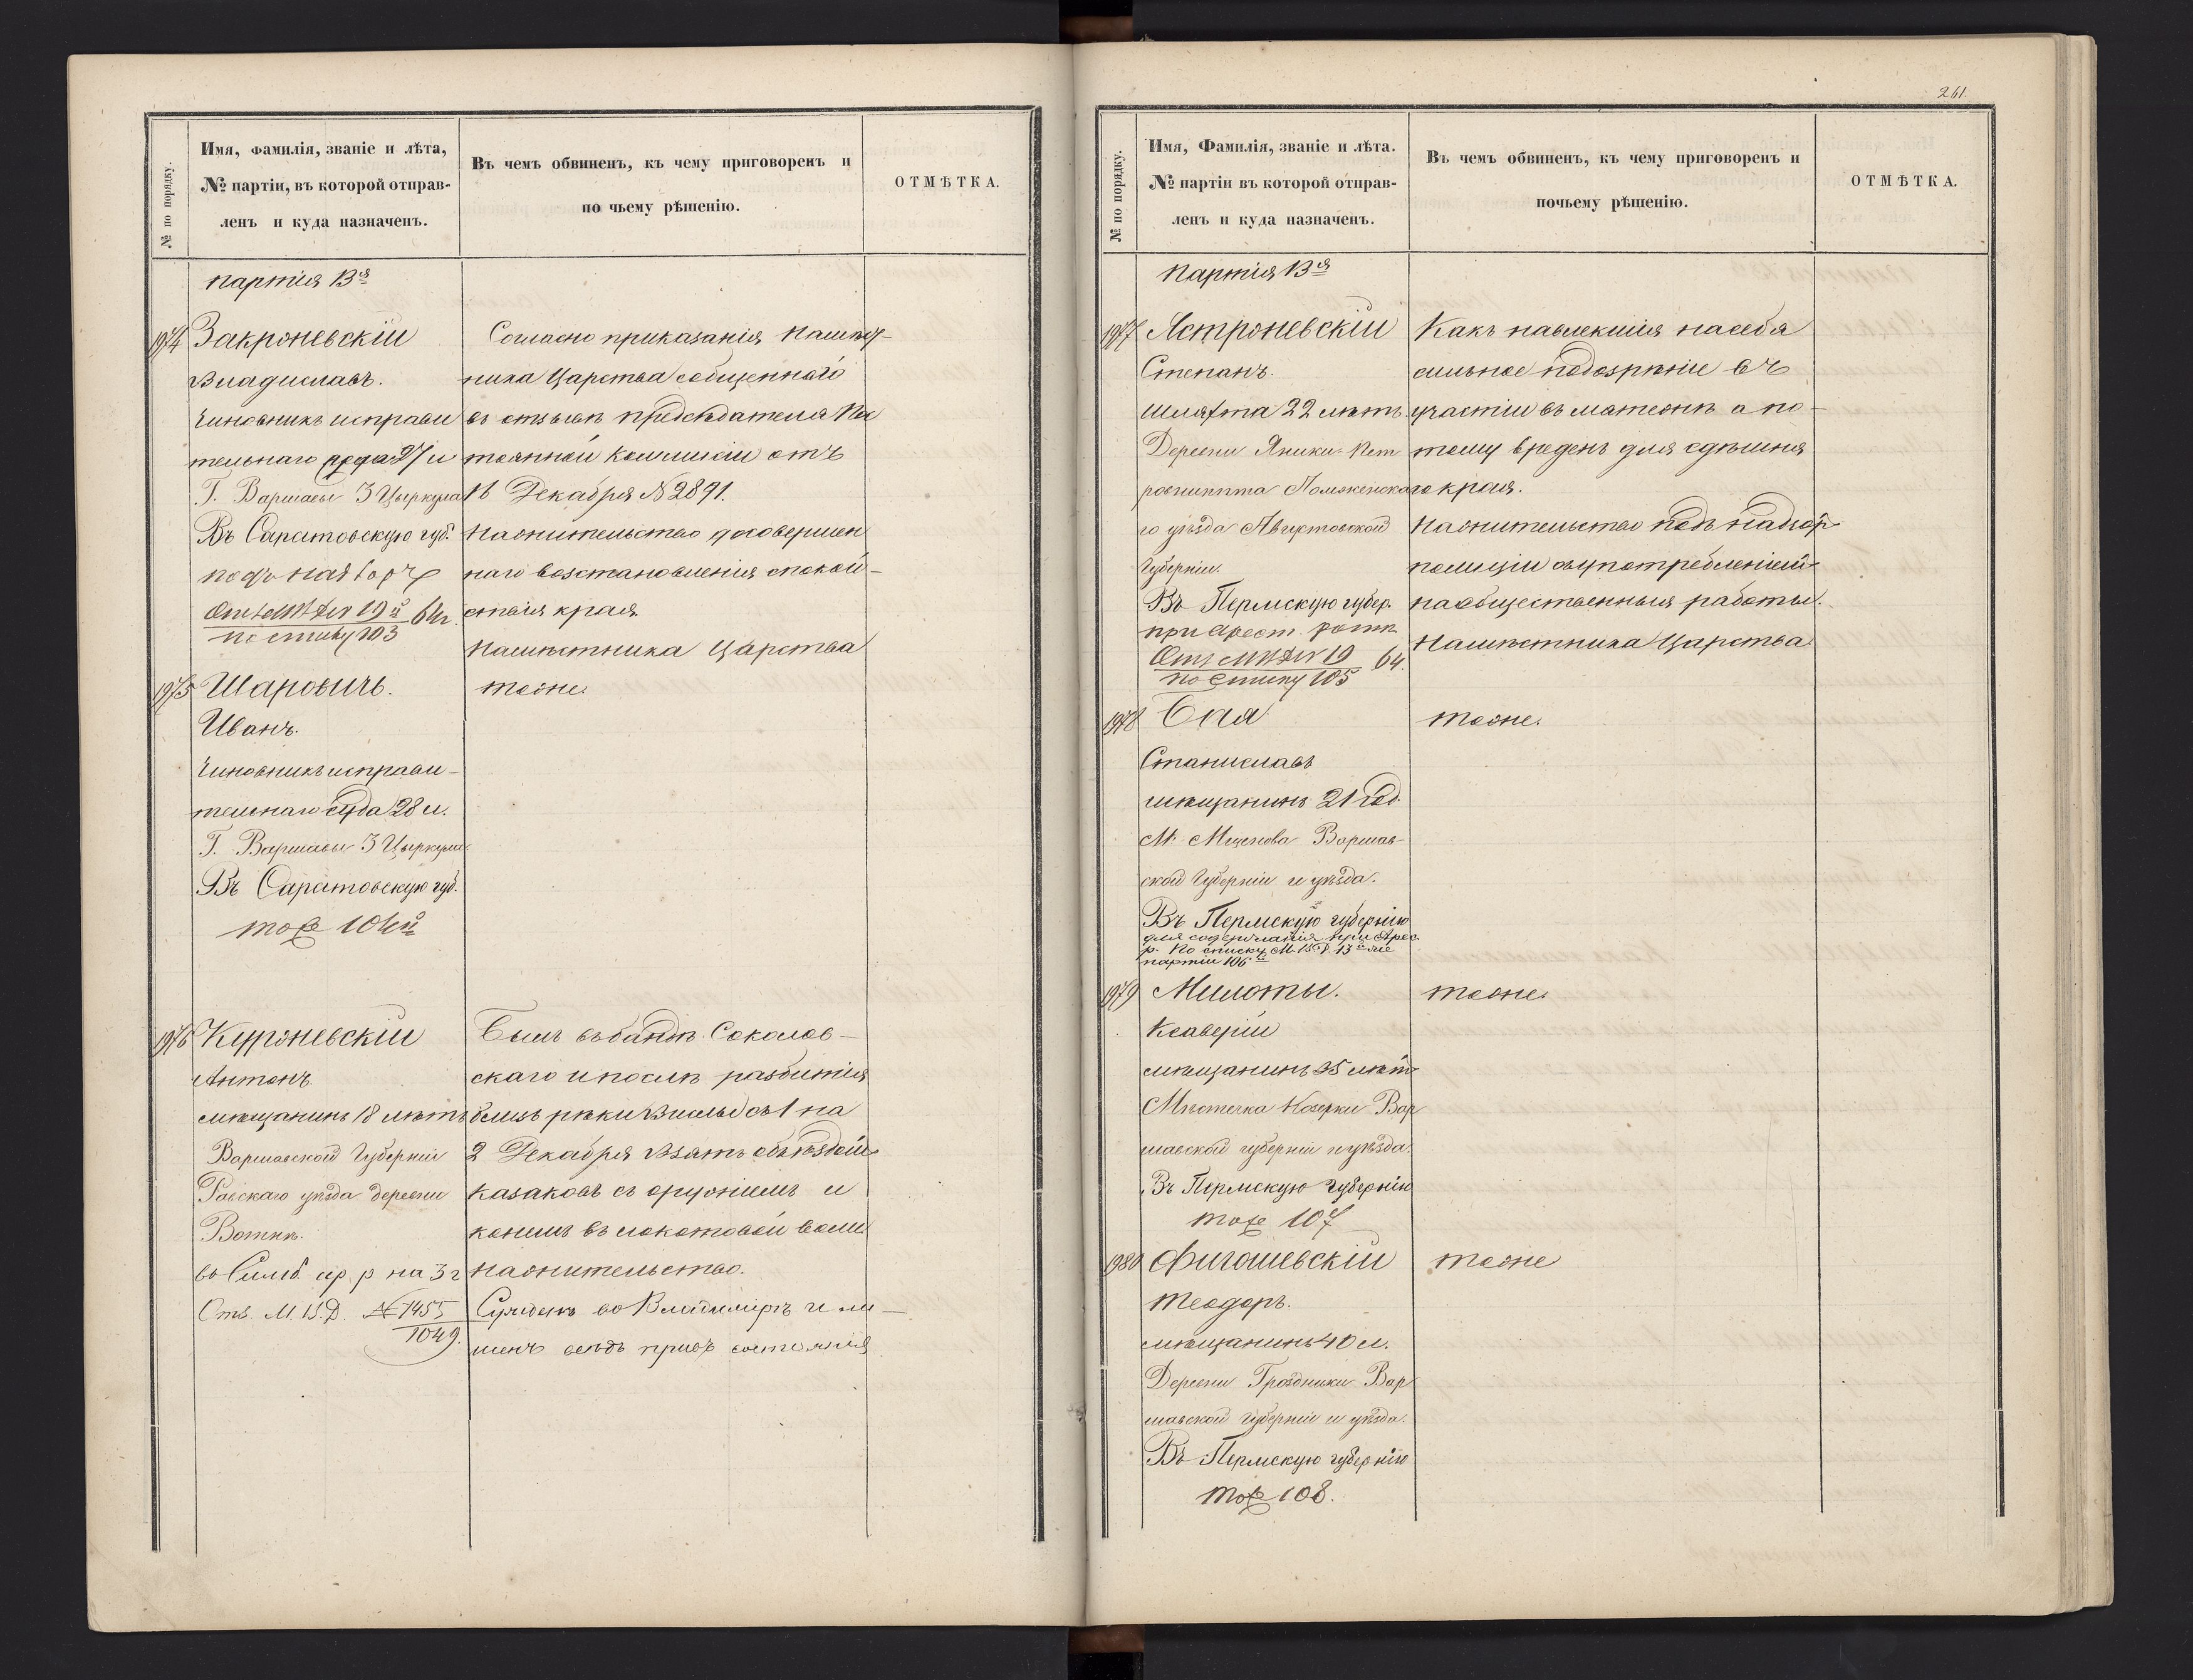 № по порядку.
Имя, Фамилія, званіе и лѣта,
№ партіи, въ которой отправ-
ленъ и куда назначенъ.
Въ чемъ обвиненъ, къ чему приговоренъ и
по чьему рѣшенію.
ОТМѢТКА.
партія 13я
1974 Закроневскій
Владиславъ.
Чиновникъ исправи
тельнаго суда 27 л
Г. Варшавы 3 Цыркула
Въ Саратовскую губ.
подъ надзоръ
19й 64г.
по списку 103
Согласно приказанія Намѣст-
ника Царства сообщеннаго
въ отзывѣ предсѣдателя По
стоянной Коммисіи отъ
16 Декабря № 2891.
На жительство до совершен
наго возстановленія спокой-
ствія края
Намѣстника Царства
1975 Шаровичъ.
Иванъ.
Чиновникъ исправи-
тельнаго суда 28 л.
Г. Варшавы 3 Цыркула
Въ Саратовскую губ.
тоже 104й
тоже.
1976 Куроневскій
Антонъ.
мѣщанинъ 18 лѣтъ
Варшавской Губерніи
Равскаго уѣзда деревни
во Симб. ар. р на 3 г
Отв. М.В.Д. № 1455
1049.
Былъ въ бандѣ Соколов-
скаго и послѣ разбитія
близъ рѣки Вислы съ 1 на
2 Декабря взятъ объѣздомъ
казаковъ съ оружіемъ и
конемъ въ локотовой
На жительство.
Сужденъ во Владимірѣ и ли-
шенъ всѣхъ правъ состоянія
261.
№ по порядку.
Имя, Фамилія, званіе и лѣта.
№ партіи въ которой отправ-
ленъ и куда назначенъ.
Въ чемъ обвиненъ, къ чему приговоренъ и
почьему рѣшенію.
ОТМѢТКА.
Партія 13я
1977 Ястроневскій
Степанъ.
Шляхта 22 лѣтъ.
Деревни Яники
Ломженска
го уѣзда Августовской
Губерніи.
Въ Пермскую губер.
при арест. ротѣ
19 64.
по списку 105
Какъ навлекшія на себя
сильное подозрѣніе въ
участіи въ мятежѣ а по-
тому вреденъ для здѣшня
го края.
На жительство подъ надзоръ
полиціи съ употребленіемъ
на общественныя работы.
Намѣстника Царства.
1978
Станиславъ
мѣщанинъ 21 год.
М. Мщенова Варшав-
ской Губерніи и уѣзда.
Въ Пермскую губернію
для содержанія при Арес.
р. По списку М.В.Д. 13й же
партіи 106й
тоже.
1979 Милоты.
Ксаверій
мѣщанинъ 35 лѣтъ
Мѣстечка Козерки Вар
шавской губерніи и уѣзда.
Въ Пермскую Губернію
тоже 107
тоже.
1980 Фигошевскій
Теодоръ.
мѣщанинъ 40 л.
Деревни Гроздники Вар
шавской Губерніи и уѣзда.
Въ Пермскую губернію
тоже 108.
тоже